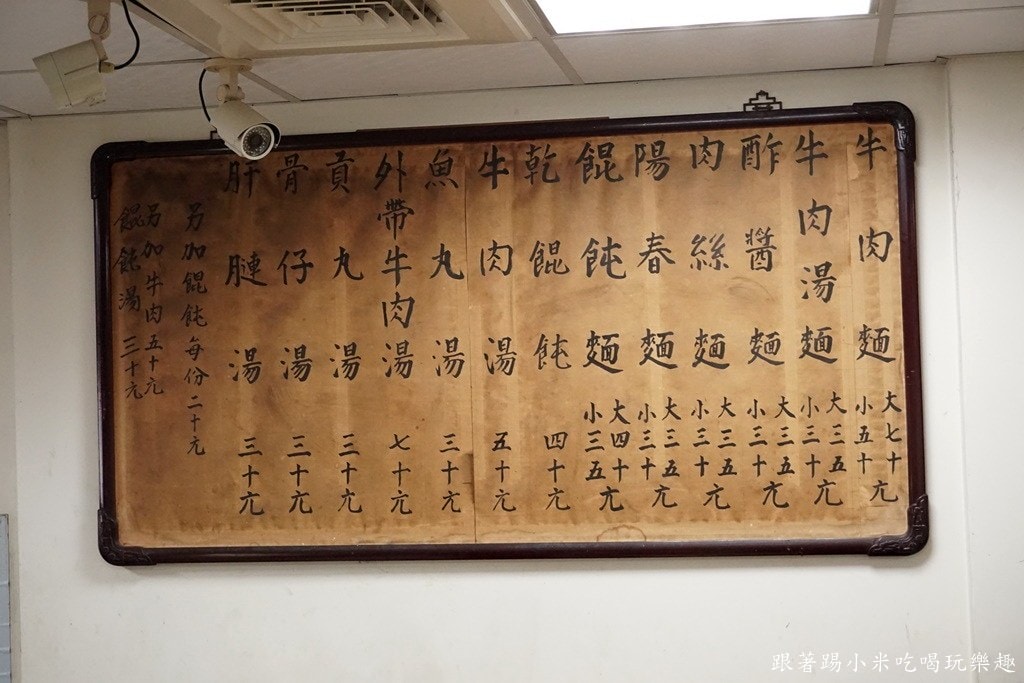 牛肉麵 大七十 小五十 元
牛肉湯麵 大三五 小三十 元
酢醬麵 大三五 小三十 元
肉絲麵 大三五 小三十 元
陽春麵 大三五 小三十 元
餛飩麵 大四十 小三五 元
乾餛飩 四十元
牛肉湯 五十元
魚丸湯 三十元
外帶牛肉湯 七十元
貢丸湯 三十元
骨仔湯 三十元
肝腱湯 三十元
另加餛飩每份二十元
另加牛肉五十元
餛飩湯 三十元
跟著踢小米吃喝玩樂趣